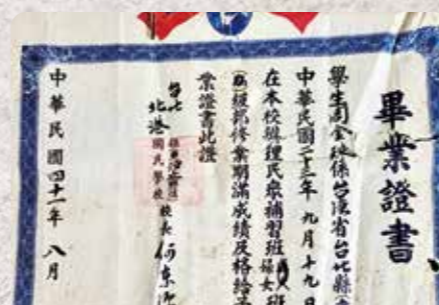 畢業證書
學生劉金線係台灣省台北縣
中華民國二十三年九月十九日
在本校辦理民衆補習班婦女班
級部修業期滿成績及格給予
業證書此證
北港國民學校校長何
中華民國四十一年八月